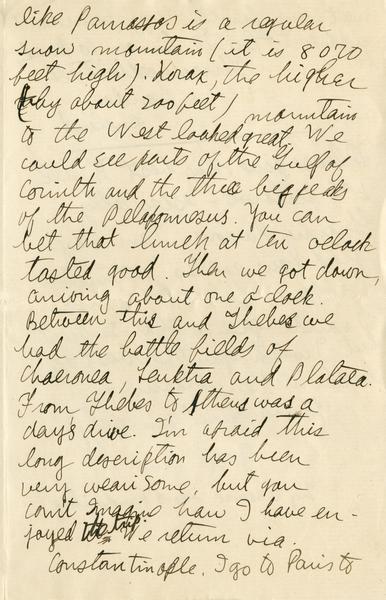 like Parnassos is a regular
snow mountain (it is 8070
feet high). Korax, the higher
(by about 200 feet) mountain
to the West looked great. We
could see parts of the Gulf of
Corinth and the three big peaks
of the Peloponnesus. You can
bet that lunch at ten o'clock
tasted good. Then we got down,
arriving about one o'clock.
Between this and Thebes we
had the battle fields of
Chaeronea, Leuktra and Plataea.
From Thebes to Athens was a
day's drive. I'm afraid this
long description has been
very wearisome, but you
can't imagine how I have en-
joyed the trip. We return via.
Constantinople. I go to Paris to